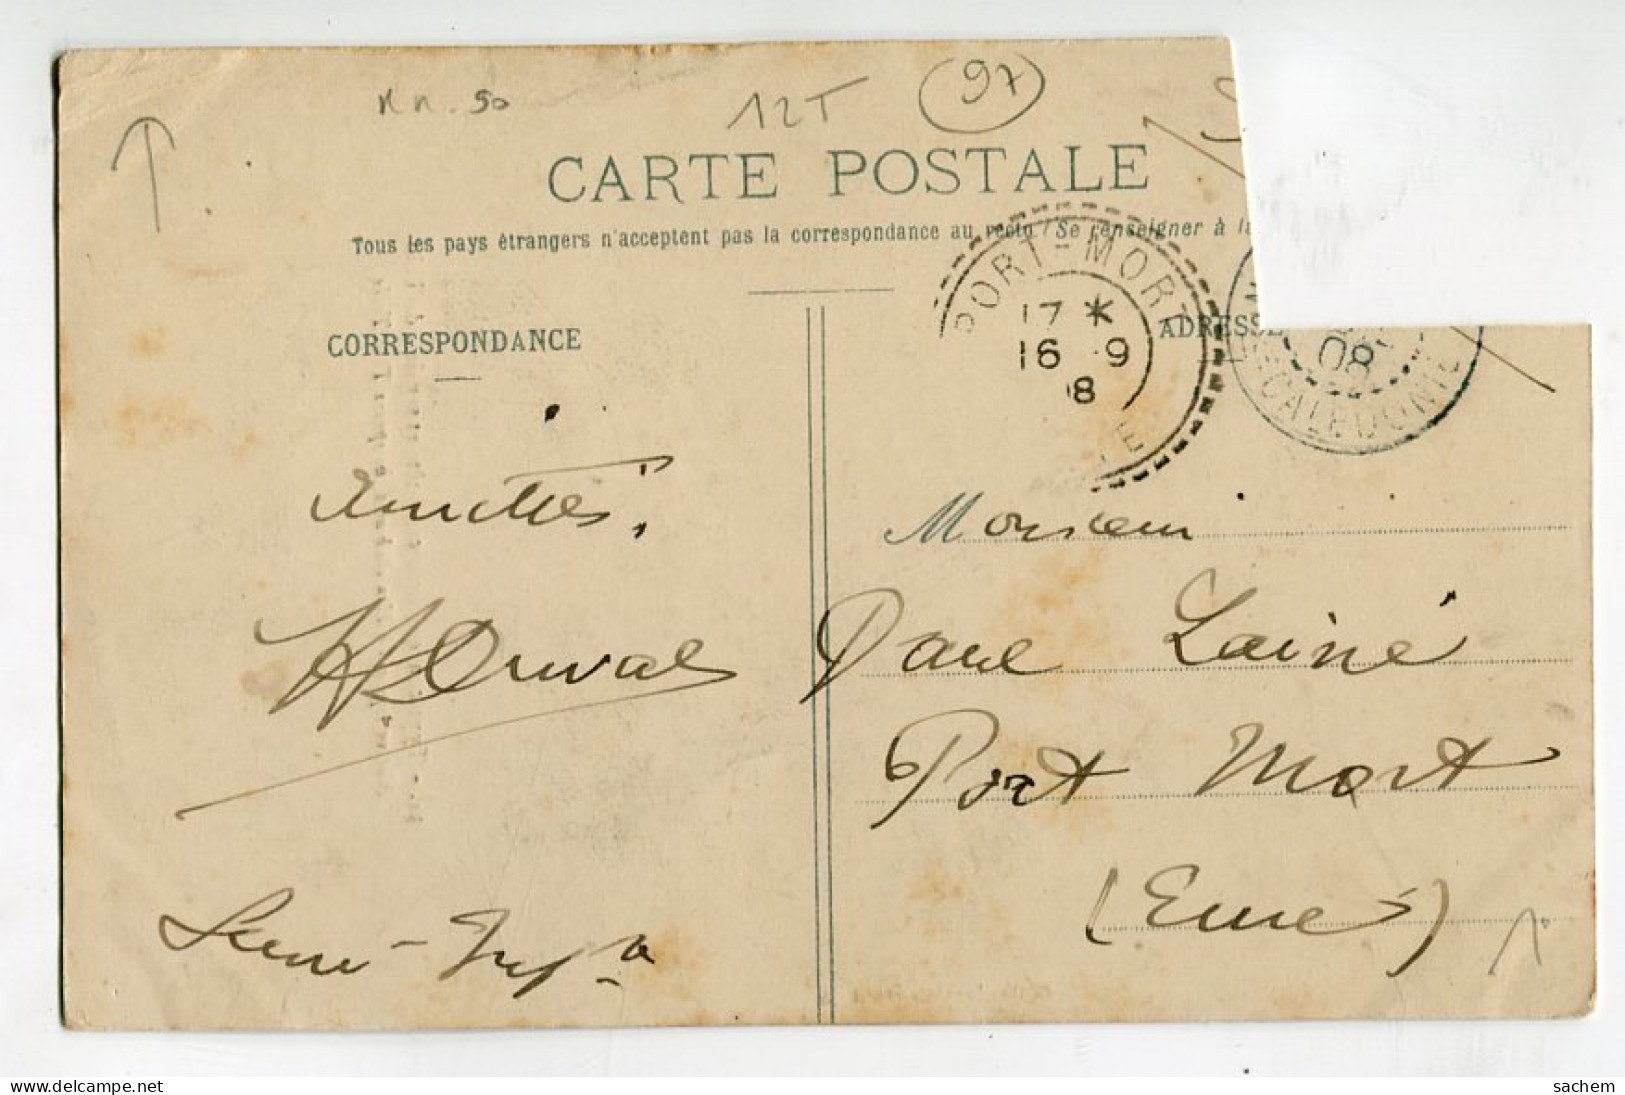 12T
97
CARTE POSTALE
Tous les pays étrangers n'acceptent pas la correspondance au recto (Se renseigner à la
PORT-MORT
17 *
16 9
8
E
CORRESPONDANCE
ADRESSE
08
CALEDONIE
Amitiés.
Duval
Monsieur
Paul Lainé
Port Mort
(Eure)
Seine-Infre
delcampe.net
sachem